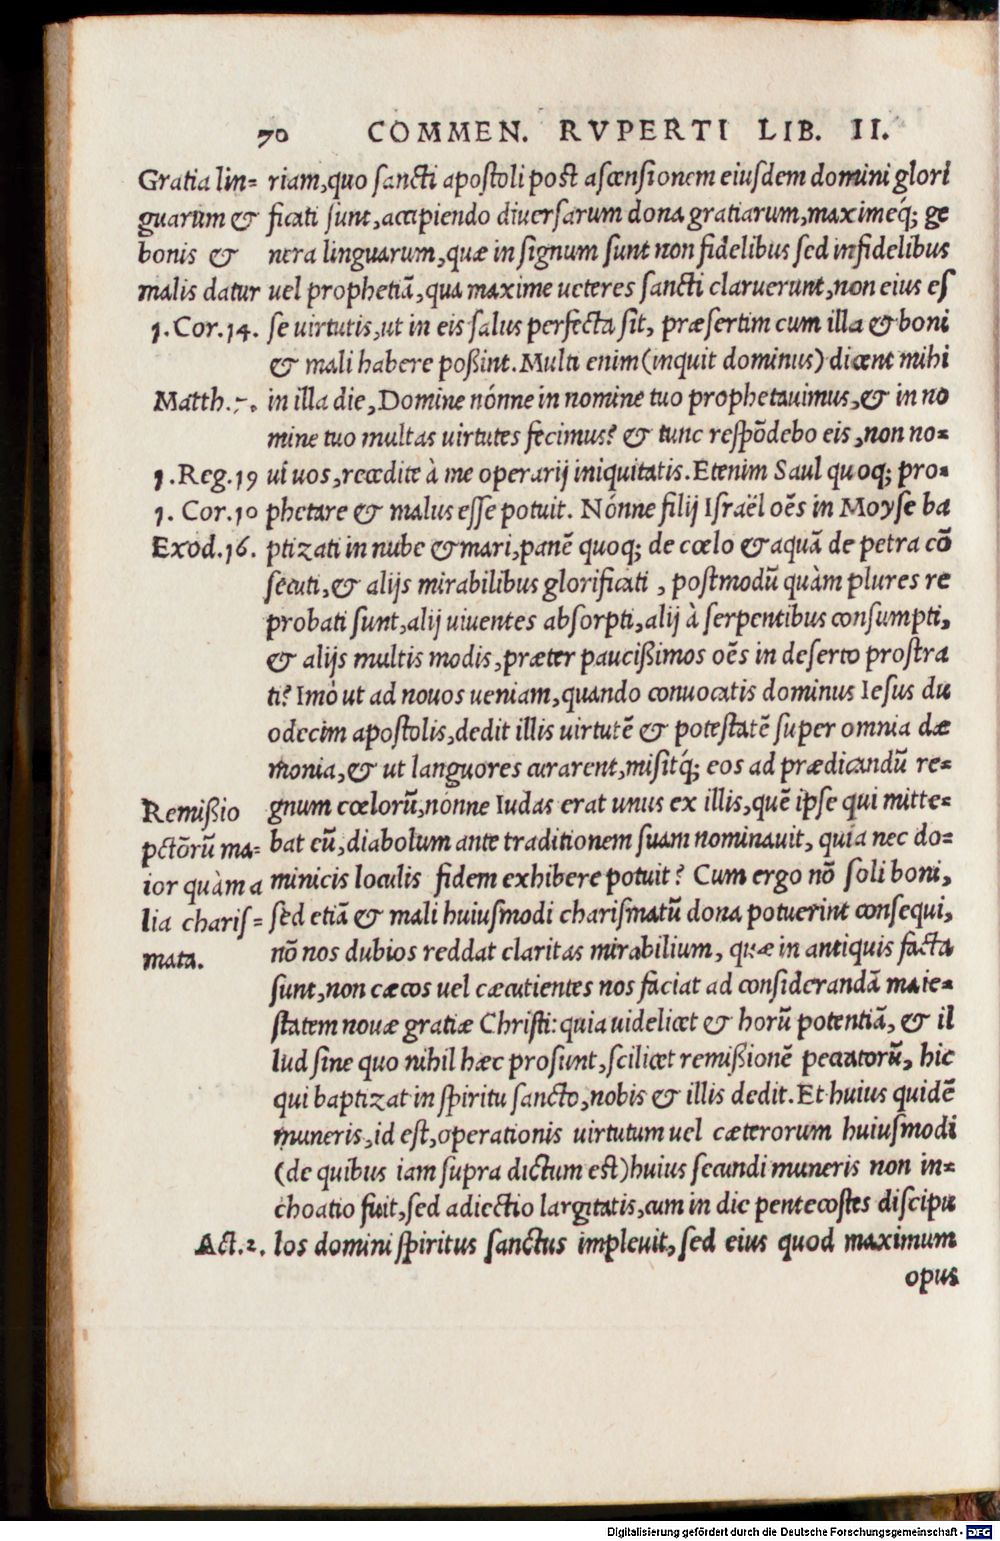 70 COMMEN. RVPERTI LIB. II.
Gratia lin=
guarum &
bonis &
malis datur
1. Cor. 14.
Matth. 7.
1. Reg. 19
1. Cor. 10
Exod. 16.
Remißio
pctōrū ma=
ior quàm a
lia charis=
mata.
Act. 2.
riam, quo sancti apostoli post ascensionem eiusdem domini glori
ficati sunt, accipiendo diuersarum dona gratiarum, maximeq́; ge
nera linguarum, quæ in signum sunt non fidelibus sed infidelibus
uel prophetiā, qua maxime ueteres sancti claruerunt, non eius es
se uirtutis, ut in eis salus perfecta sit, præsertim cum illa & boni
& mali habere poßint. Multi enim (inquit dominus) dicent mihi
in illa die, Domine nónne in nomine tuo prophetauimus, & in no
mine tuo multas uirtutes fecimus? & tunc respōdebo eis, non no=
ui uos, recedite à me operarij iniquitatis. Etenim Saul quoq; pro=
phetare & malus esse potuit. Nónne filij Israël oēs in Moyse ba
ptizati in nube & mari, panē quoq; de cœlo & aquā de petra cō
secuti, & alijs mirabilibus glorificati, postmodū quàm plures re
probati sunt, alij uiuentes absorpti, alij à serpentibus consumpti,
& alijs multis modis, præter paucißimos oēs in deserto prostra
ti? Imò ut ad nouos ueniam, quando conuocatis dominus Iesus du
odecim apostolis, dedit illis uirtutē & potestatē super omnia dæ
monia, & ut languores curarent, misitq́; eos ad prædicandū re=
gnum cœlorū, nónne Iudas erat unus ex illis, quē ipse qui mitte=
bat eū, diabolum ante traditionem suam nominauit, quia nec do=
minicis loculis fidem exhibere potuit? Cum ergo nō soli boni,
sed etiā & mali huiusmodi charismatū dona potuerint consequi,
nō nos dubios reddat claritas mirabilium, quæ in antiquis facta
sunt, non cæcos uel cæcutientes nos faciat ad considerandā maie=
statem nouæ gratiæ Christi: quia uidelicet & horū potentiā, & il
lud sine quo nihil hæc prosunt, scilicet remißionē peccatorū, hic
qui baptizat in spiritu sancto, nobis & illis dedit. Et huius quidē
muneris, id est, operationis uirtutum uel cæterorum huiusmodi
(de quibus iam supra dictum est) huius secundi muneris non in=
choatio fuit, sed adiectio largitatis, cum in die pentecostes discipu
los domini spiritus sanctus impleuit, sed eius quod maximum
opus
Digitalisierung gefördert durch die Deutsche Forschungsgemeinschaft - DFG